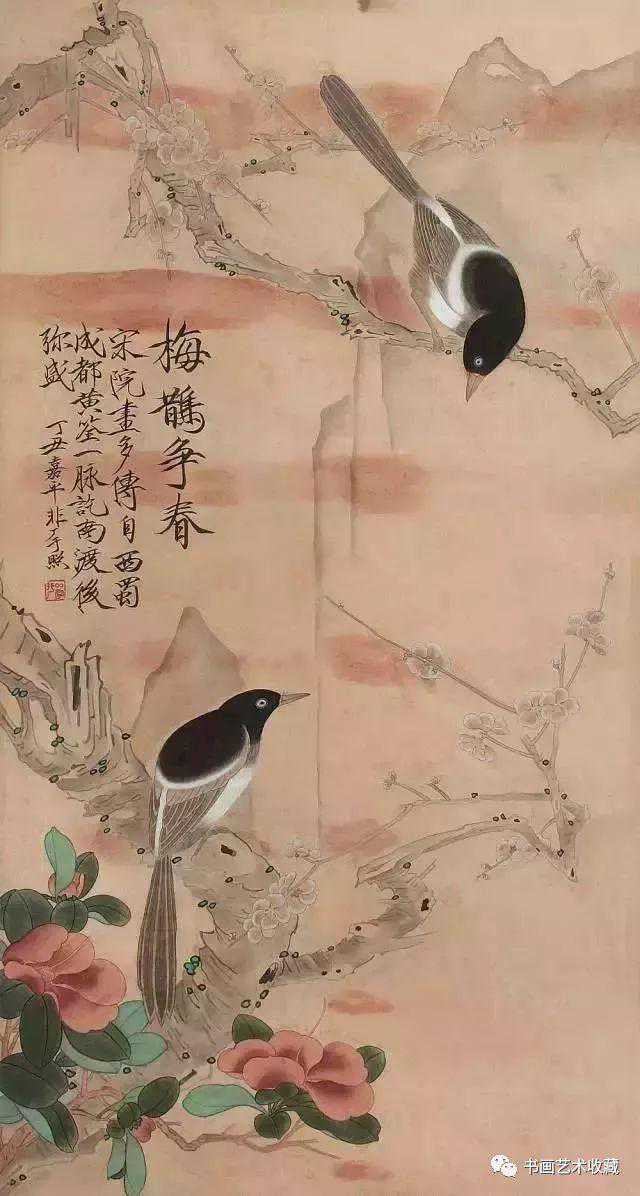 梅鵲争春
宋院畫多傳自西蜀
成都黄筌一脉訖南渡後
弥盛
丁丑嘉平非厂照
书画艺术收藏